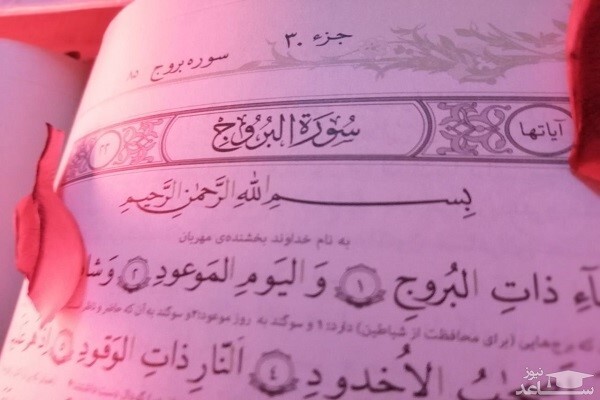 جزء ۳۰
سوره بروج ۸۵
آیاتها سُورَةُ البُرُوجِ ۲۲
بِسمِ اللهِ الرَّحمٰنِ الرَّحیمِ
به نام خداوند بخشنده‌ی مهربان
آءِ ذاتِ البُروجِ ۱ وَ الیَومِ المَوعودِ ۲ وَشا
که برج‌هایی (برای محافظت از شیاطین) دارد؛ ۱ و سوگند به روز موعود؛ ۲ و سوگند به آن که حاضر و ناظر
الاُخدودِ ۴ اَلنّارِ ذاتِ الوَقودِ ۵ اِذ هُم
ساعد نیوز